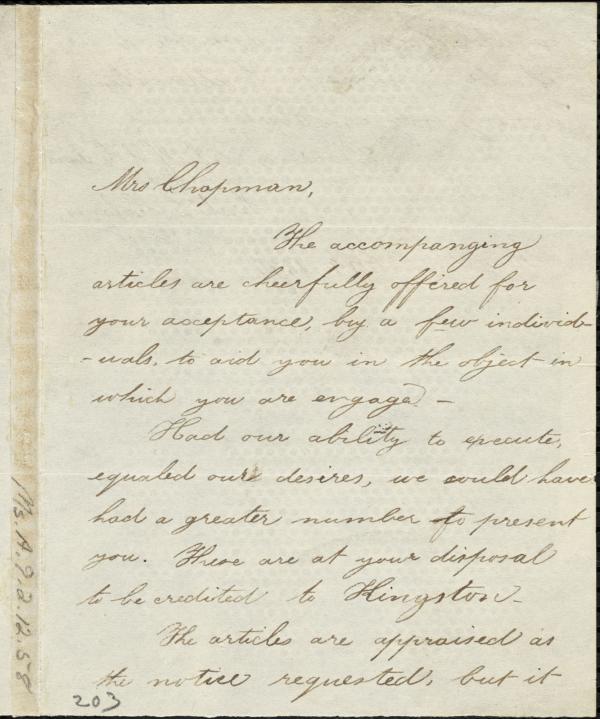 Mrs Chapman,
The accompanging
articles are cheerfully offered for
your acceptance, by a few individ-
-uals, to aid you in the object in
which you are engaged -
Had our ability to execute,
equaled our desires, we could have
had a greater number to present
you. These are at your disposal
to be credited to Kingston -
The articles are appraised as
the notice requested, but it
203
Ms. A. 9. 2. 12. 58